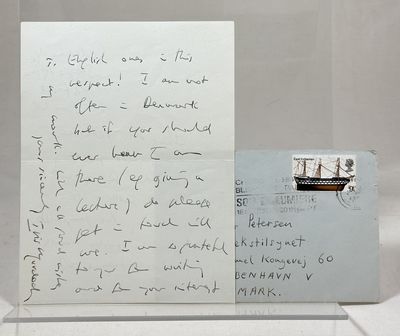 To English ones in this
respect! I am not
often in Denmark
but if you should
ever hear I am
there (eg giving a
lecture) do please
get in touch with
me. I am so grateful
to you for writing
and for your interest
in my work. With all good wishes
yours sincerely
East Indiaman
9D
Petersen
Kongevej 60
BENHAVN V
MARK.